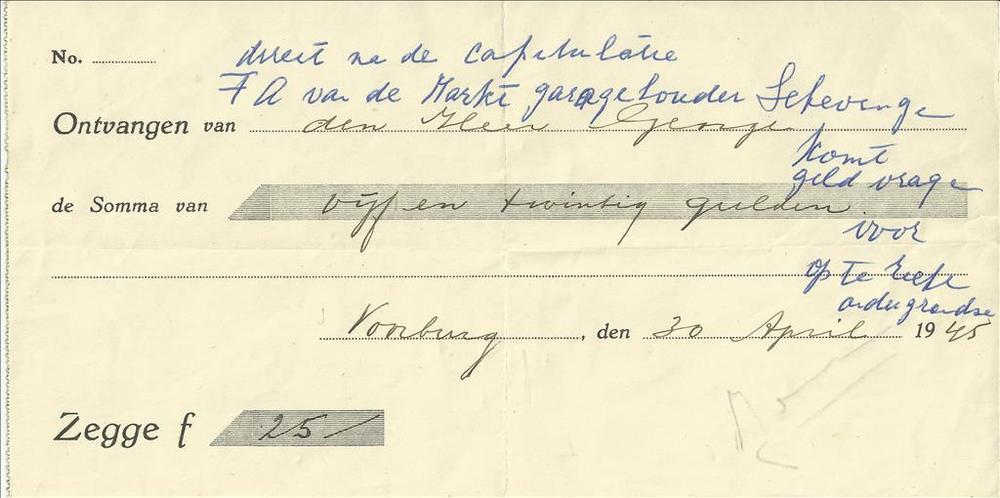 No.
direct na de capitulatie
F A van de Markt garagehouder Scheveninge
Ontvangen van den Heer
komt
geld vrage
de Somma van vijf en twintig gulden
voor
op te
ondergrondse
Voorburg, den 30 April 1945
Zegge f 25/